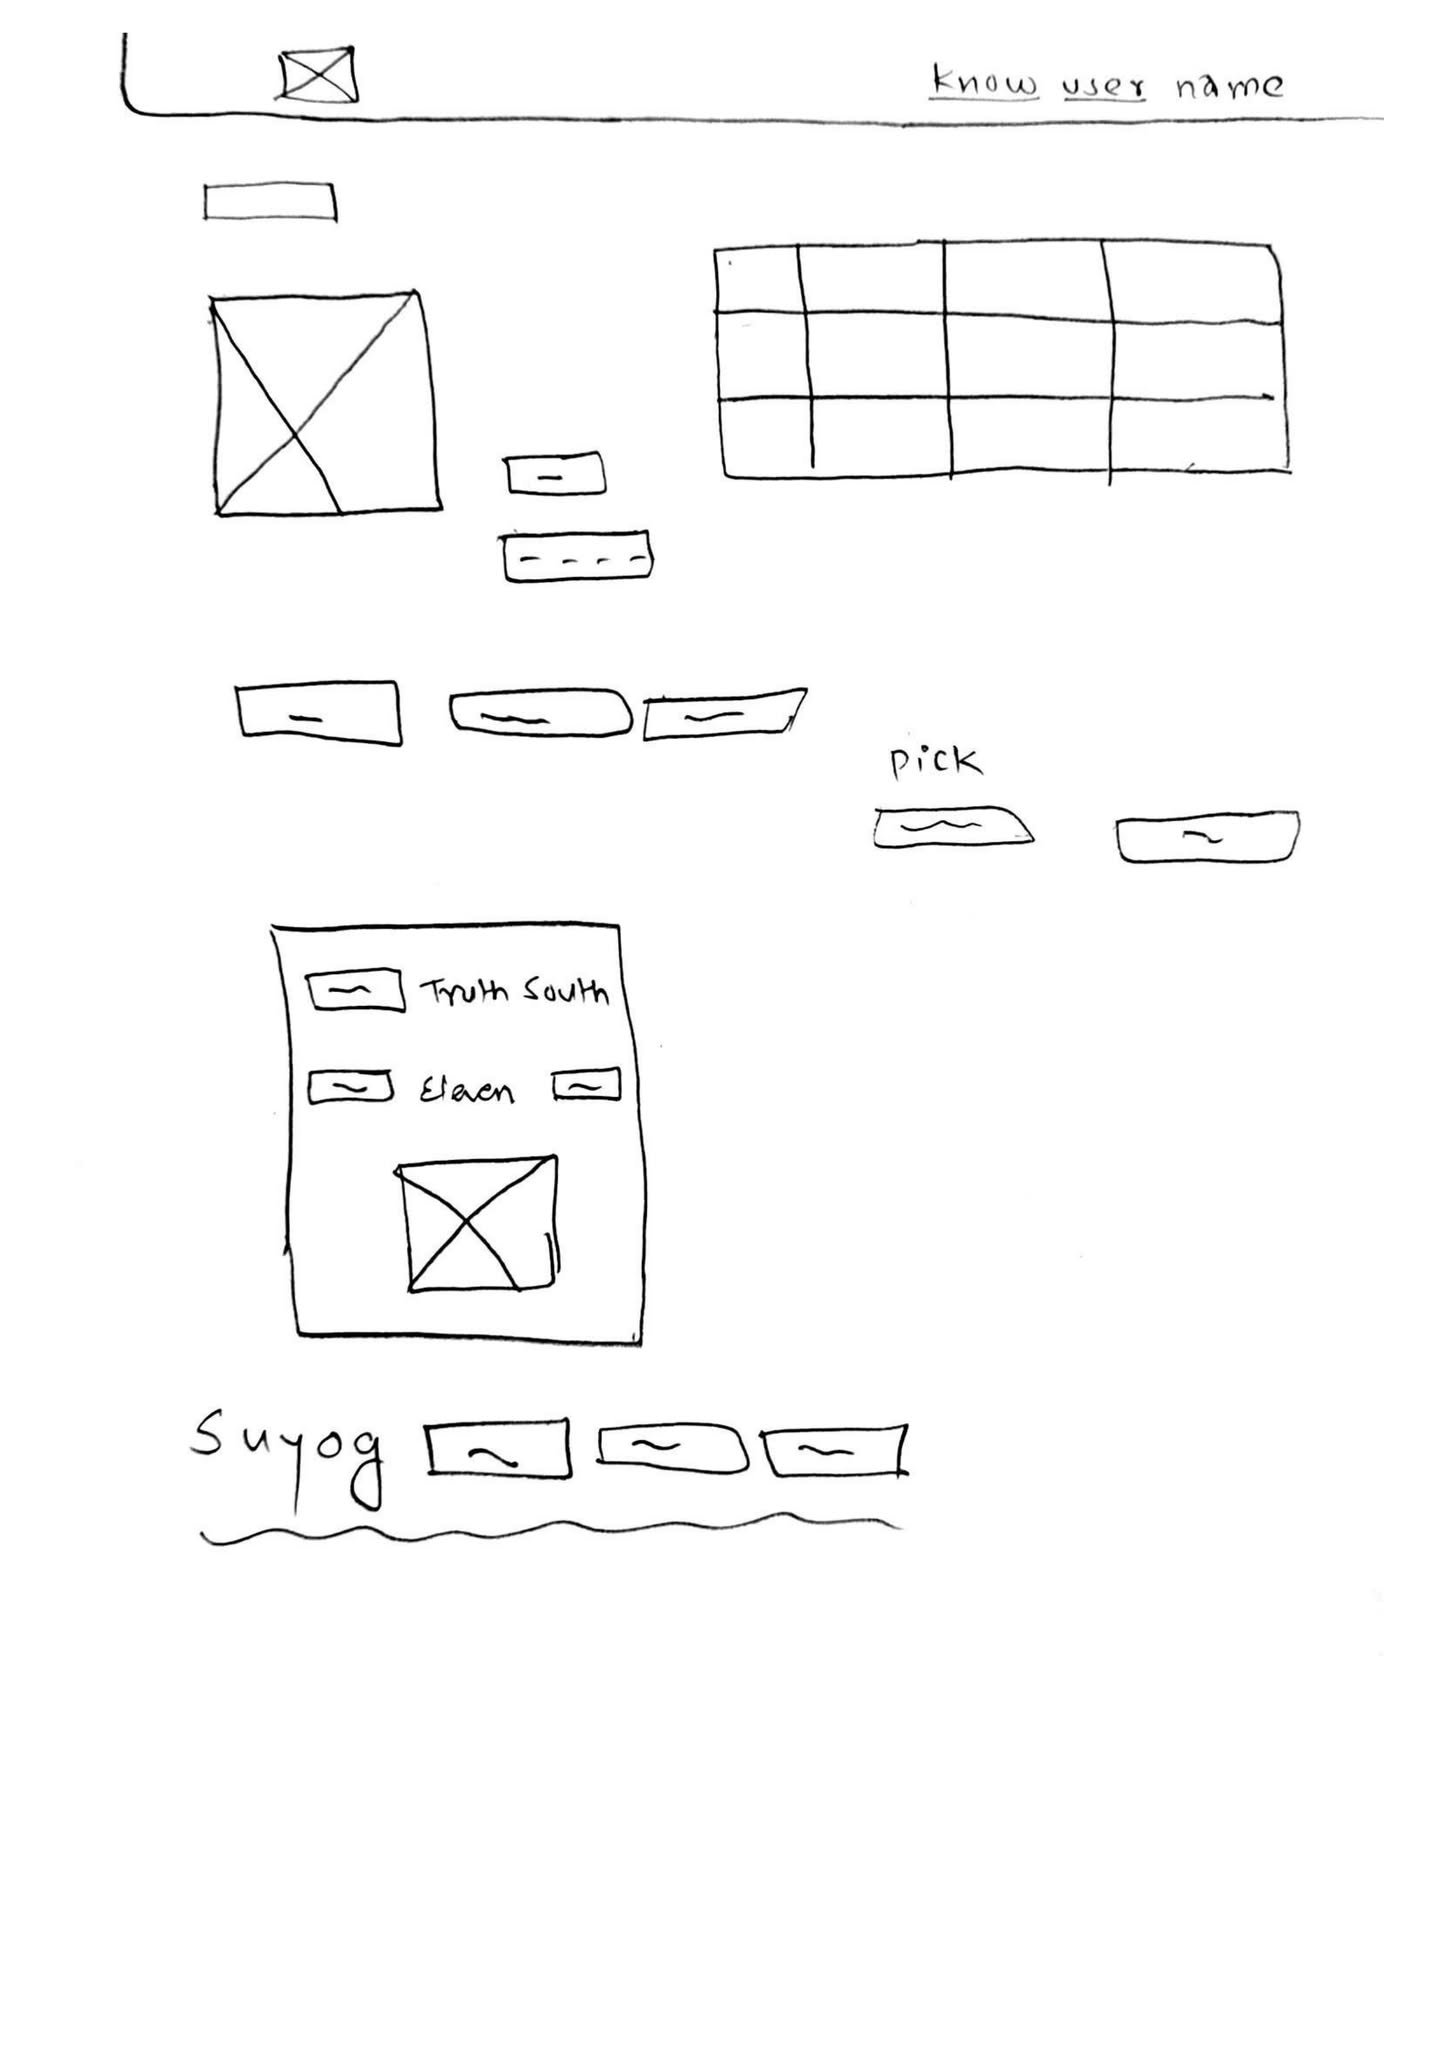 Know user name
Pick
Truth South
Eleven
Suyog